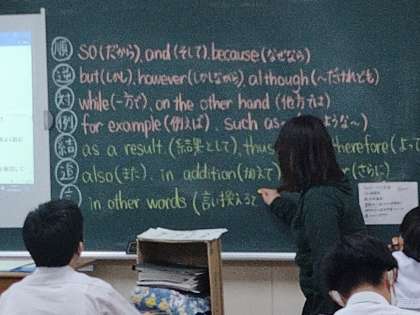 順 so(だから), and(そして), because(なぜなら)
逆 but(しかし), however(しかしながら) although(〜だけれども)
対 while(一方で), on the other hand(他方では)
例 for example(例えば), such as ような〜)
結 as a result(結果として), thus therefore(よって
追 also(また), in addition(加えて) (さらに)
in other words(言い換えると